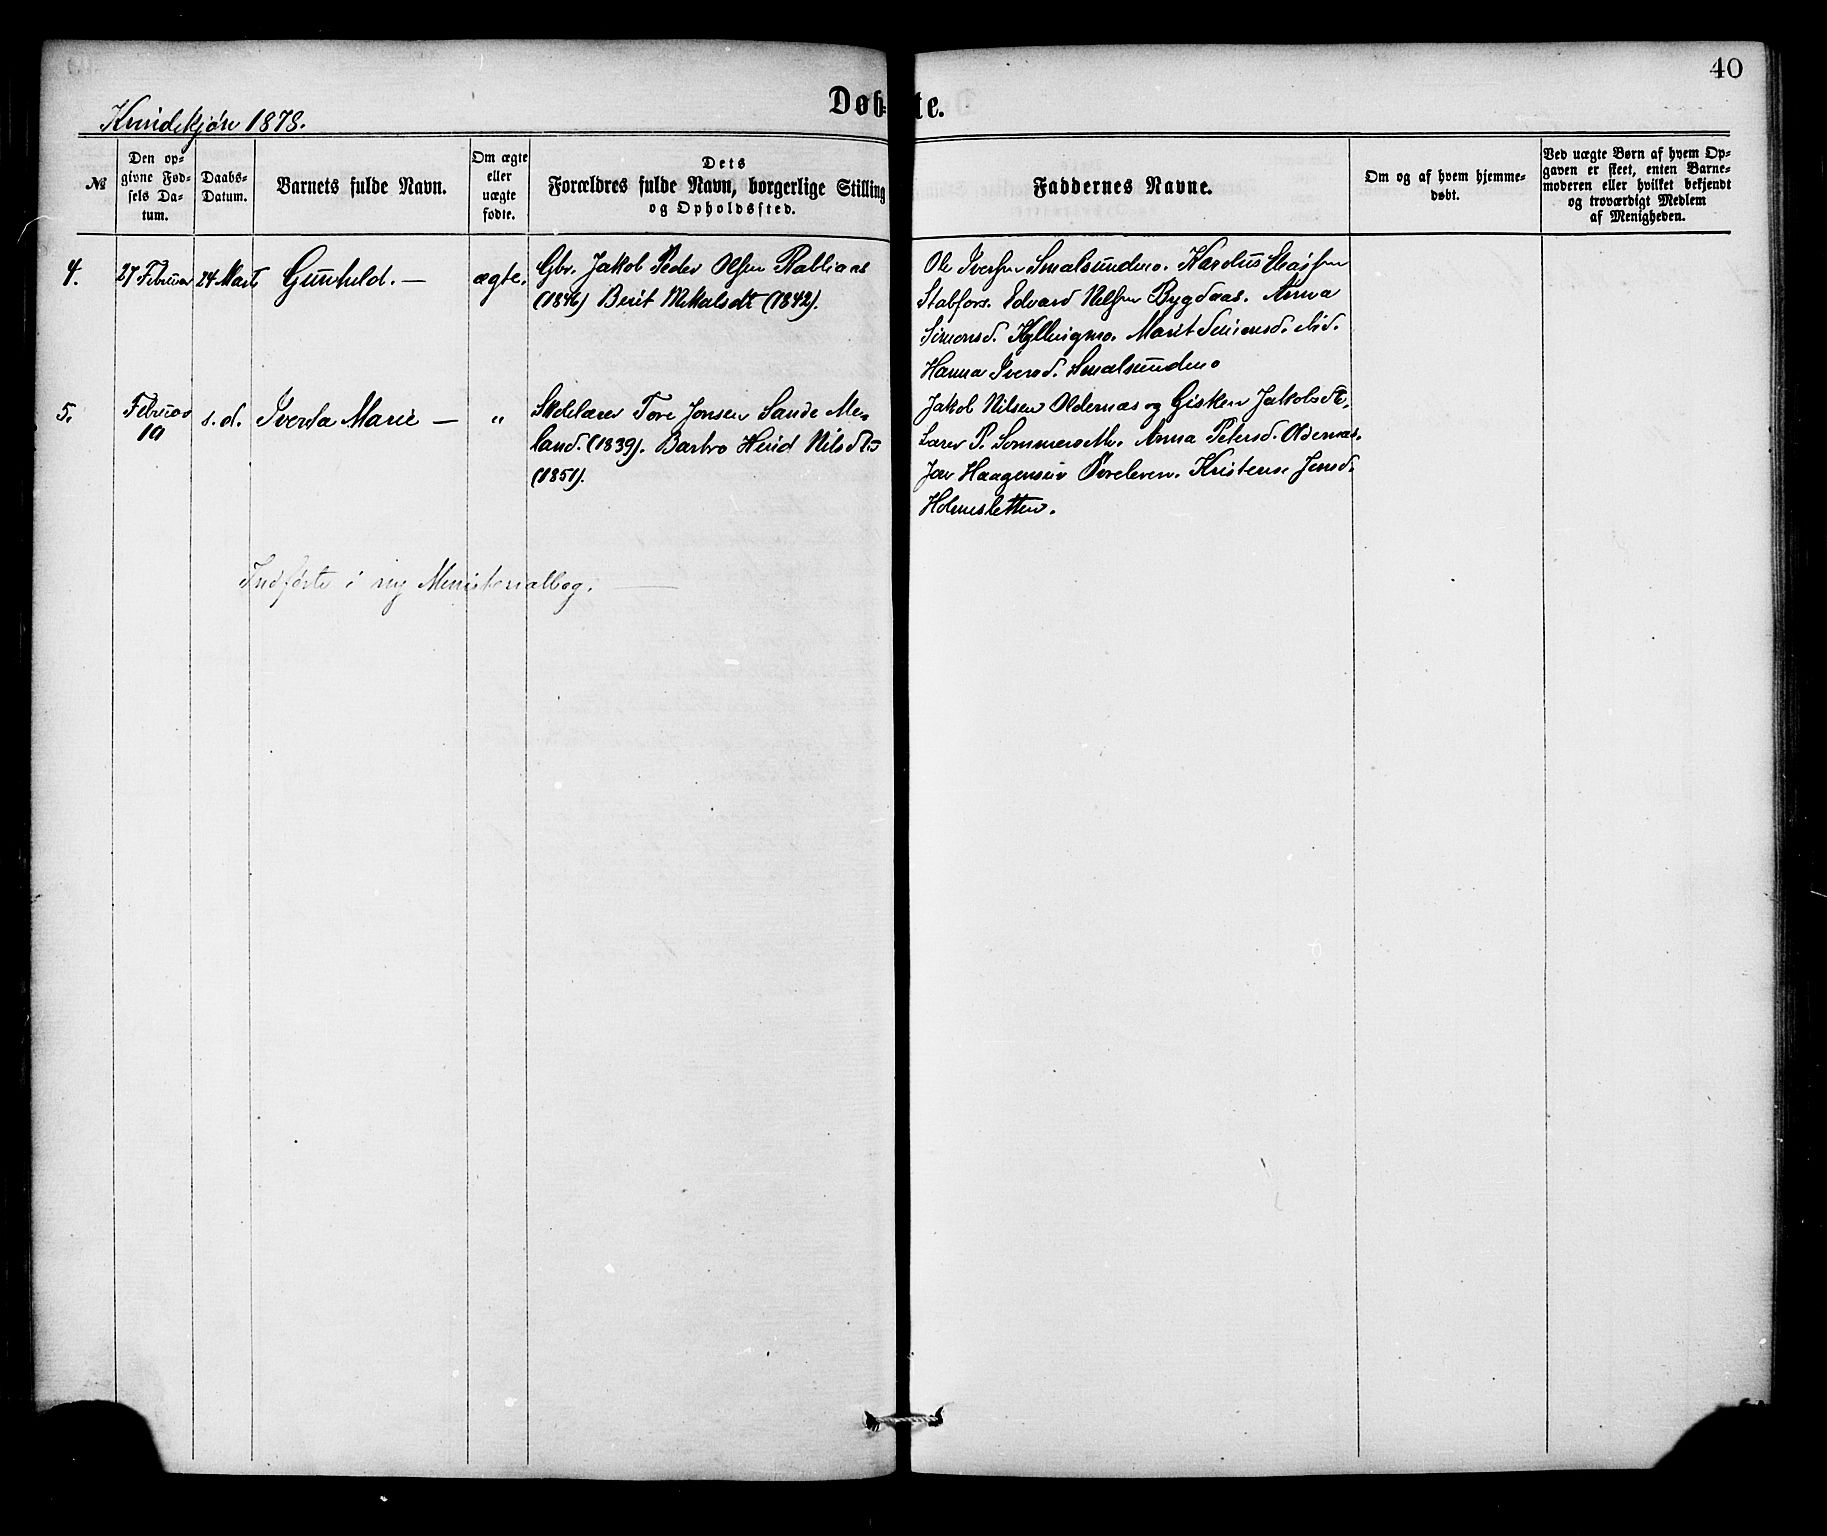 40
Døbte.
Kvindekjøn 1878.
№
Den opgivne Fødsels Datum.
Daabs-Datum.
Barnets fulde Navn.
Om ægte eller uægte fødte.
Dets Forældres fulde Navn, borgerlige Stilling og Opholdssted.
Faddernes Navne.
Om og af hvem hjemmedøbt.
Ved uægte Børn af hvem Opgaven er skeet, enten Barnemoderen eller hvilket bekjendt og troværdigt Medlem af Menigheden.
4. 27 Februar 24 Marts Gunhild. — ægte. Gbr. Jakob Peder Olsen Rabliaas
(1846) Berit Mikalsdt (1842).
Ole Iversen Smalsundmo. Kardus
Stabfors. Edvard Nilsen Bygdaas. Anna
Simonsd. Kyllingmo. Marit Simonsd. ibid.
Hanna Iversd. Smalsundmo
5. Februar 19 s. d. Iverda Marie — „ Skolelærer Tore Jonsen Sande Me-
land. (1839). Barbro Nilsdtr
(1851).
Jakob Nilsen Oldernæs og Gisken Jakobsdt.
Lærer P. Sommerseth. Anna Petersd. Oldernæs.
Haagensen Øvreleren. Kristense Jensd.
Holmesletten.
Indførte i ny Ministerialbog. —